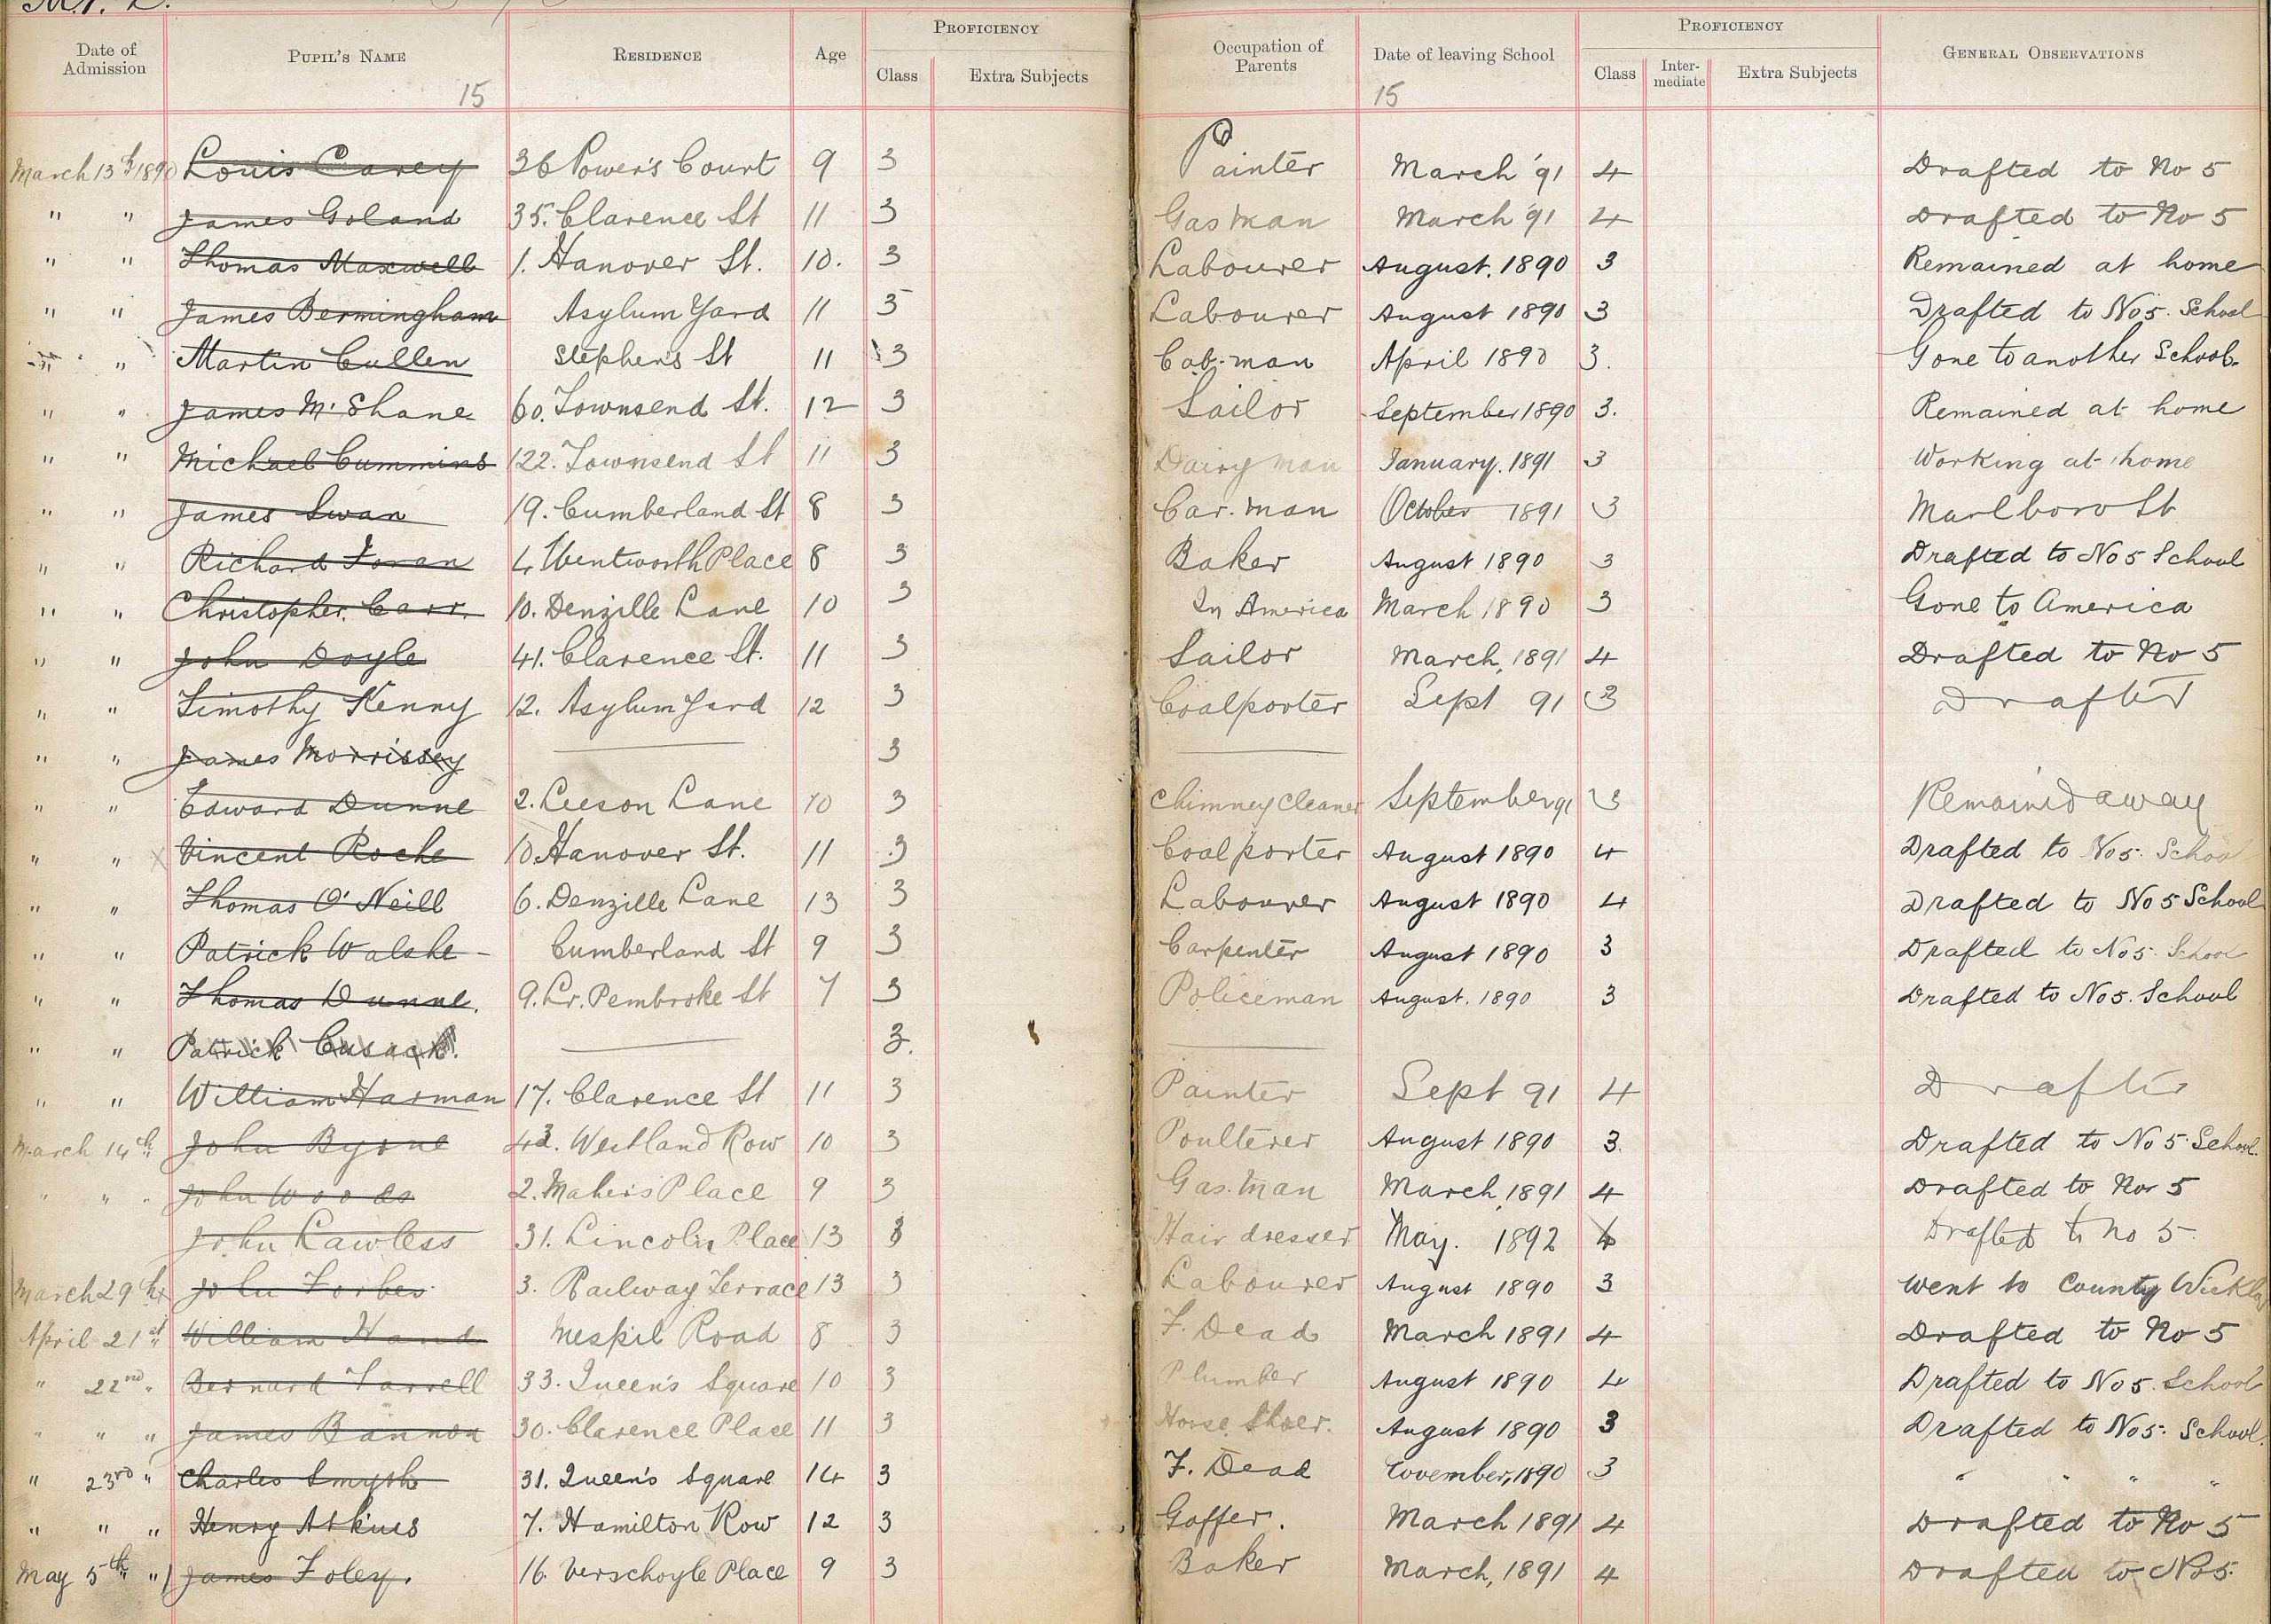 Date of Admission PUPIL'S NAME RESIDENCE Age PROFICIENCY Class Extra Subjects Occupation of Parents Date of leaving School PROFICIENCY Class Inter-mediate Extra Subjects GENERAL OBSERVATIONS
15 15
March 13th 1890 Louis Carey 36 Power's Court 9 3 Painter March '91 4 Drafted to No 5
" " James Goland 35. Clarence St 11 3 Gas man March '91 4 Drafted to No 5
" " Thomas Maxwell 1. Hanover St. 10. 3 Labourer August. 1890 3 Remained at home
" " James Bermingham Asylum Yard 11 3 Labourer August 1890 3 Drafted to No 5. School
" " Martin Cullen Stephen's St 11 3 Cab-man April 1890 3. Gone to another School.
" " James McShane 60. Townsend St. 12 3 Sailor September 1890 3. Remained at home
" " Michael Cummins 122. Townsend St 11 3 Dairy man January. 1891 3 Working at home
" " James Swan 19. Cumberland St 8 3 Car. man October 1891 3 Marlboro St
" " Richard Foran 4. Wentworth Place 8 3 Baker August 1890 3 Drafted to No 5 School
" " Christopher. Carr. 10. Denzille Lane 10 3 In America March 1890 3 Gone to America
" " John Doyle 41. Clarence St. 11 3 Sailor March, 1891 4 Drafted to No 5
" " Timothy Kenny 12. Asylum Yard 12 3 Coalporter Sept 91 3 Drafted
" " James Morrissey 3
" " Edward Dunne 2. Leeson Lane 10 3 Chimney Cleaner September 91 3 Remained away
" " Vincent Roche 10. Hanover St. 11 3 Coalporter August 1890 4 Drafted to No 5. School
" " Thomas O'Neill 6. Denzille Lane 13 3 Labourer August 1890 4 Drafted to No 5 School
" " Patrick Walshe Cumberland St 9 3 Carpenter August 1890 3 Drafted to No 5. School
" " Thomas Dunne. 9. Lr. Pembroke St 7 3 Policeman August. 1890 3 Drafted to No 5. School
" " Patrick Cusack. 3.
" " William Harman 17. Clarence St 11 3 Painter Sept 91 4 Drafted
March 14th " John Byrne Westland Row 10 3 Poulterer August 1890 3. Drafted to No 5. School.
" " " John Woods 2. Maher's Place 9 3 Gas. man March, 1891 4 Drafted to No 5
John Lawless 31. Lincoln Place 13 3 Hair dresser May. 1892 4 Drafted to No 5.
March 29th John Forbes 3. Railway Terrace 13 3 Labourer August 1890 3 Went to County Wicklow
April 21st " William Hand Mespil Road 8 3 F. Dead March 1891 4 Drafted to No 5
" 22nd " Bernard Farrell 33. Queen's Square 10 3 Plumber August 1890 4 Drafted to No 5. School
" " " James Bannon 30. Clarence Place 11 3 Horse Shoer. August 1890 3 Drafted to No 5. School.
" 23rd " Charles Smyth 31. Queen's Square 14 3 F. Dead November, 1890 3 " " " "
" " " Henry Atkins 7. Hamilton Row 12 3 Gaffer. March 1891 4 Drafted to No 5
May 5th " James Foley. 16. Verschoyle Place 9 3 Baker March, 1891 4 Drafted to No 5.